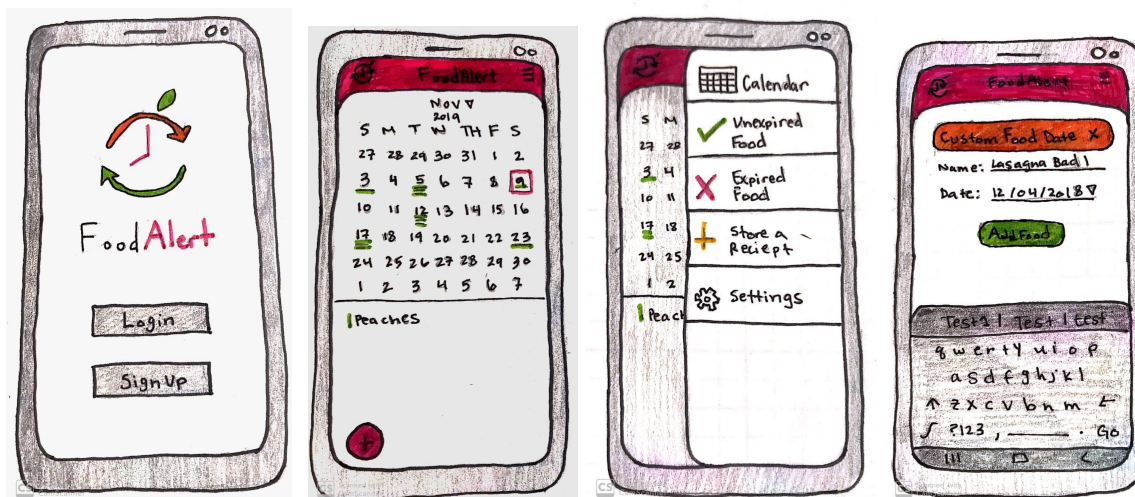 FoodAlert
Login
Sign Up
FoodAlert
Nov
2019
S M T W TH F S
27 28 29 30 31 1 2
3 4 5 6 7 8 9
10 11 12 13 14 15 16
17 18 19 20 21 22 23
24 25 26 27 28 29 30
1 2 3 4 5 6 7
Peaches
+
S M
27 28
3 4
10 11
17 18
24 25
1 2
Peach
Calendar
Unexpired
Food
Expired
Food
Store a
Reciept
Settings
FoodAlert
Custom Food Date X
Name: Lasagna Bad |
Date: 12/04/2018
Add Food
Test1 | Test | test
q w e r t y u i o p
a s d f g h j k l
z x c v b n m
?123 , . Go
CS
CS
CS
CS